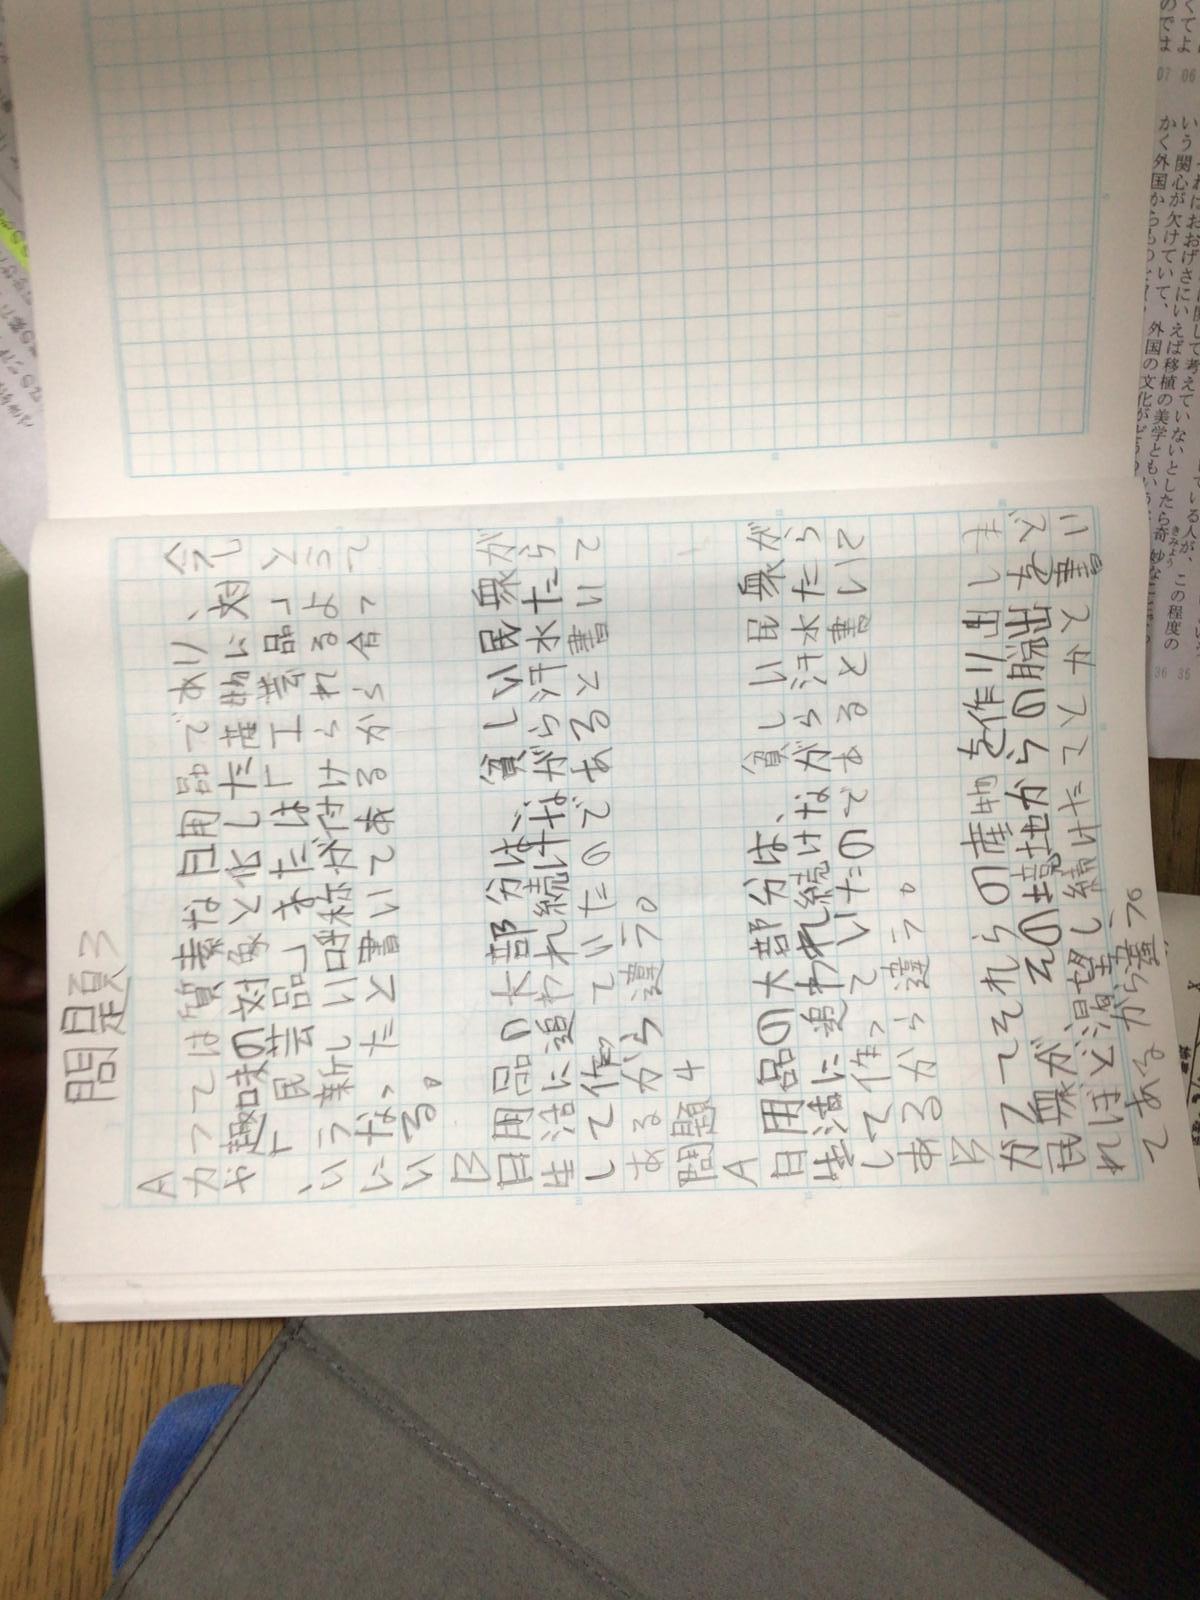 問題3
A
かつては質素な日用品であり、今
や趣味の対象と化した産物に対し
「民芸品」または「工芸品」と
いう新しい呼称が付けられるよう
になったと書いてあるから合って
いる。
B
日用品の大部分は、貧しい民衆が
生活に追われ続けながら汗水たら
して作っていたのであると書いて
あるから違う。
問題4
A
日用品の大部分は、貧しい民衆が
生活に追われ続けながら汗水たら
して作っていたのであると書いて
あるから違う。
B
かつてそれらの産物を作り出しま
民衆がその境地からの脱出をど
れほど渇望し続けたことかと書い
てあるから違う。
いう関心が欠けていて、
かく外国からものを
えば移植の美学ともいう
外国の文化が
ないとしたら奇妙な
きみょう
この程度の
ている人が、
のでは
くてよ
07 06
36 35